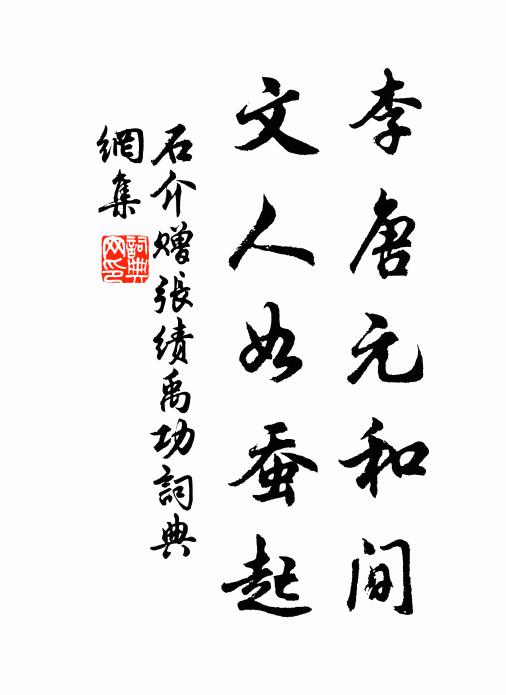 李唐元和间
文人如蚕起
石介赠張績禹功詞典
網集
詞典
网印